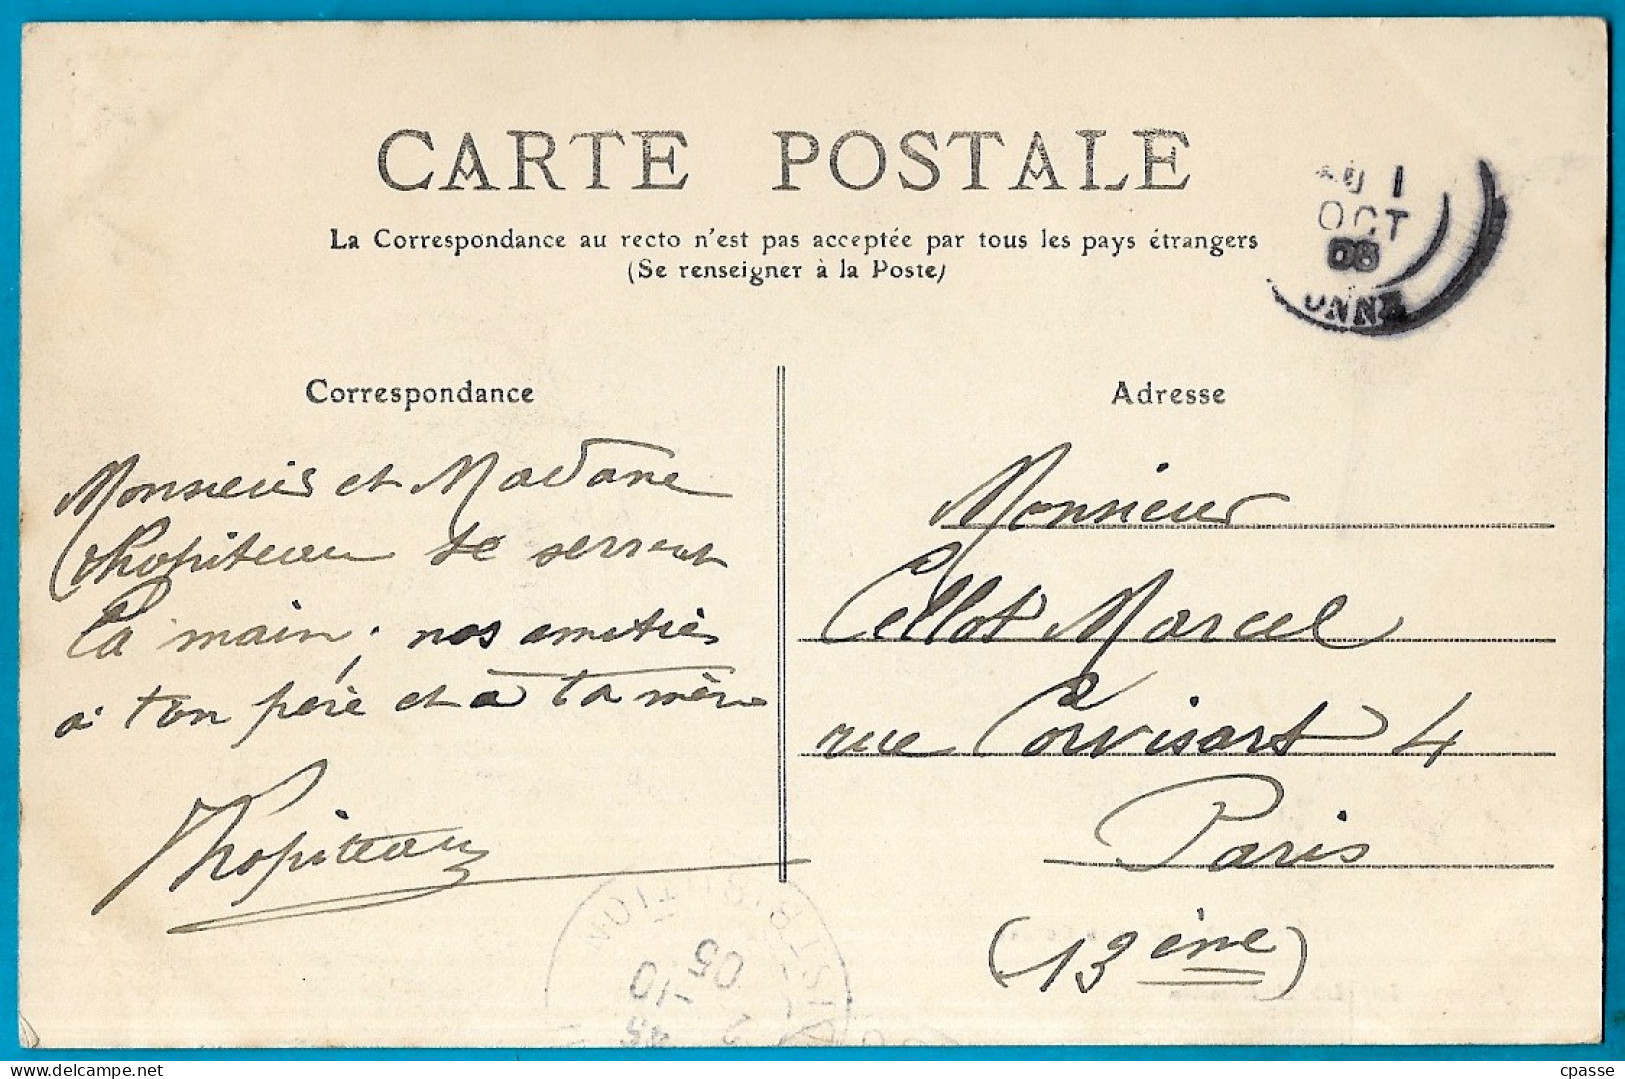 CARTE POSTALE
La Correspondance au recto n'est pas acceptée par tous les pays étrangers
(Se renseigner à la Poste)
1
OCT
08
ONNE
Correspondance
Monsieur et Madame
Thopiteau te serrent
la main; nos amitiés
à ton père et à ta mère
Thopiteau
Adresse
Monsieur
Cellot Marcel
rue Corvisart 4
Paris
(13ème)
DISTRIBUTION
2 -10
05
cpasse